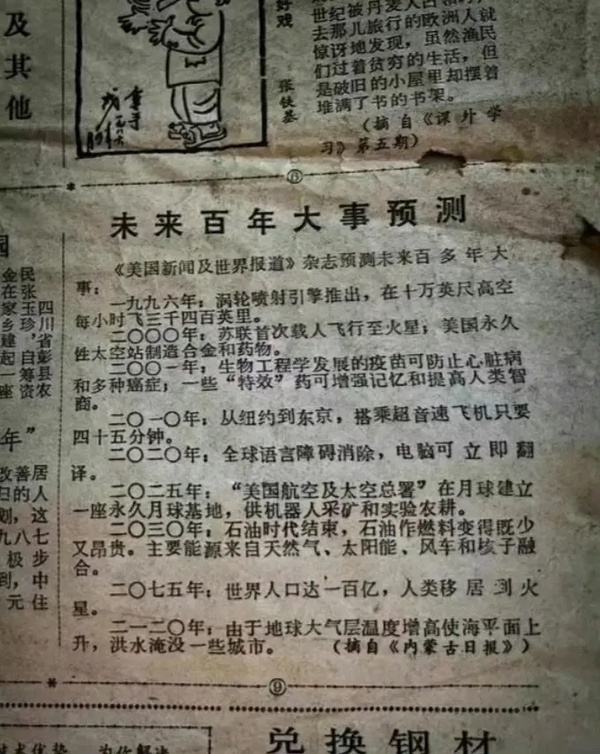 及其他
好戏
张铁基
去那儿旅行的欧洲人就
惊讶地发现，虽然渔民
们过着贫穷的生活，但
是破旧的小屋里却摆着
堆满了书的书架。
（摘自《课外学
习》第五期）
⑥
未来百年大事预测
《美国新闻及世界报道》杂志预测未来百多年大
事：
一九九六年：涡轮喷射引擎推出，在十万英尺高空
每小时飞三千四百英里。
二〇〇〇年：苏联首次载人飞行至火星；美国永久
性太空站制造合金和药物。
二〇〇一年：生物工程学发展的疫苗可防止心脏病
和多种癌症；一些“特效”药可增强记忆和提高人类智
商。
二〇一〇年：从纽约到东京，搭乘超音速飞机只要
四十五分钟。
二〇二〇年：全球语言障碍消除，电脑可立即翻
译。
二〇二五年：“美国航空及太空总署”在月球建立
一座永久月球基地，供机器人采矿和实验农耕。
二〇三〇年：石油时代结束，石油作燃料变得既少
又昂贵。主要能源来自天然气、太阳能、风车和核子融
合。
二〇七五年：世界人口达一百亿，人类移居到火
星。
二一二〇年：由于地球大气层温度增高使海平面上
升，洪水淹没一些城市。（摘自《内蒙古日报》）
四川省彭县农
民张玉珍，自筹资
金在家乡建起一座
年”
改善居
旧的人
划，这
九八七
极步
到，中
元住
⑨
兑换钢材